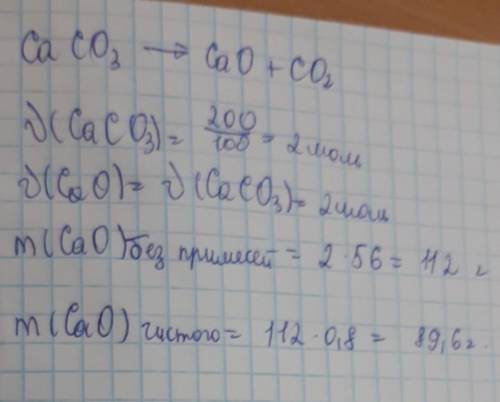 CaCO₃ → CaO + CO₂
ν(CaCO₃) = 200/100 = 2моль
ν(CaO) = ν(CaCO₃) = 2моль
m(CaO) без примесей = 2·56 = 112 г
m(CaO) чистого = 112·0,8 = 89,6г.